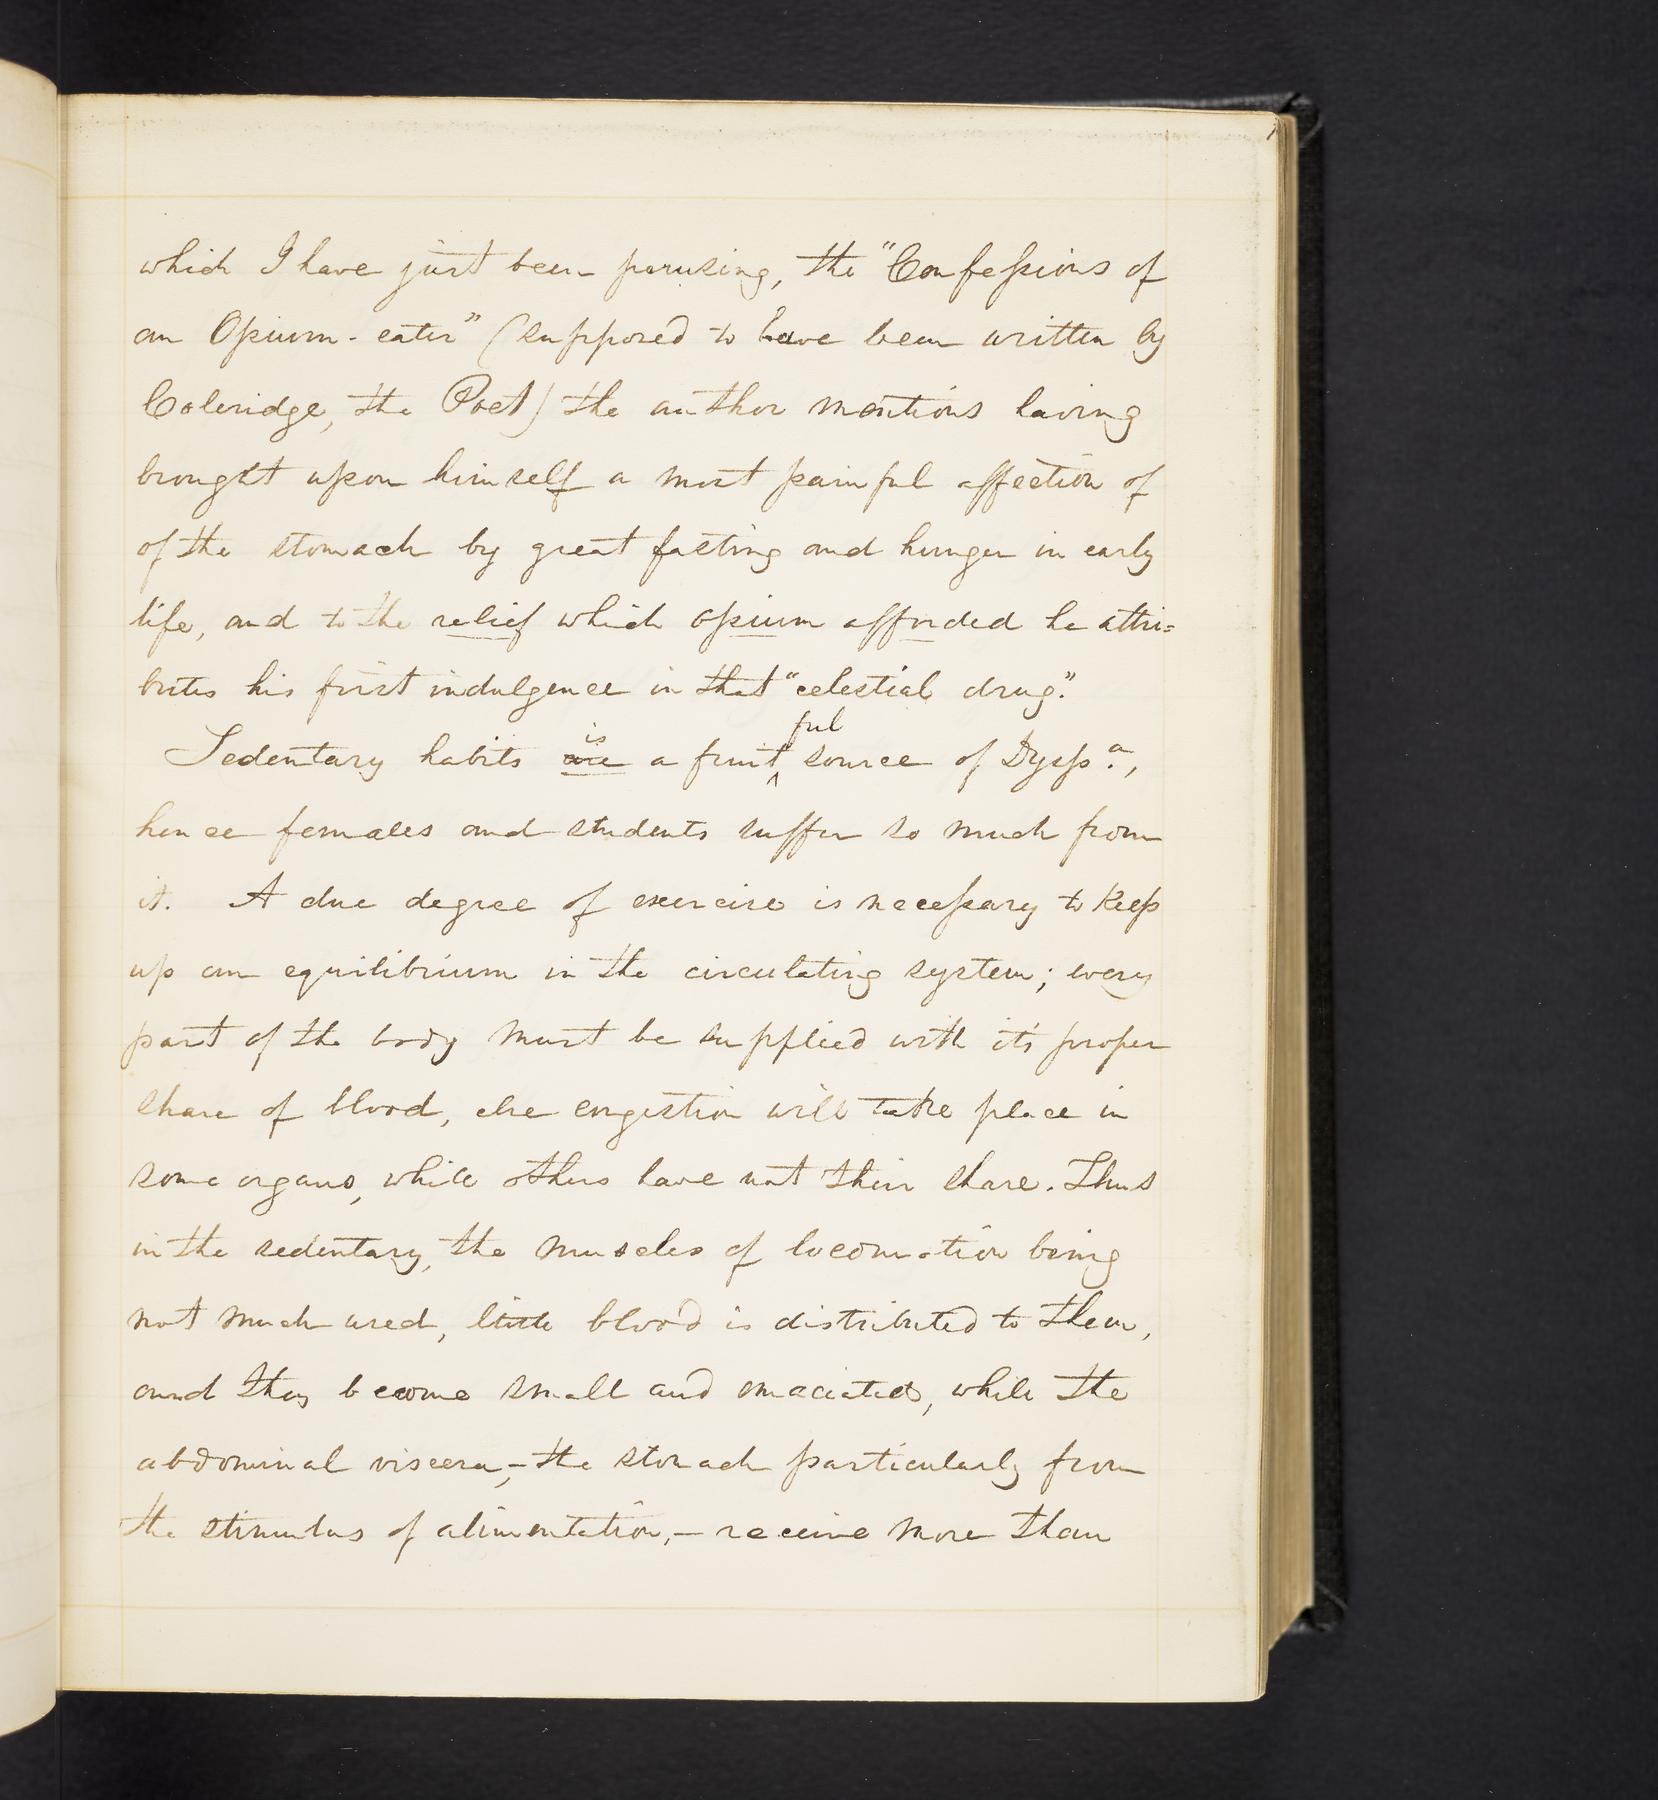 which I have just been perusing, the "Confessions of
an Opium-eater" (supposed to have been written by
Coleridge, the Poet) the author mentions having
brought upon himself a most painful affection of
of the stomach by great fasting and hunger in early
life, and to the relief which opium afforded he attri=
butes his first indulgence in that "celestial drug."
Sedentary habits are is a fruit^ful source of Dysp.a,
hence females and students suffer so much from
it. A due degree of exercise is necessary to keep
up an equilibrium in the circulating system; every
part of the body must be supplied with it's proper
share of blood, else congestion will take place in
some organs, while others have not their share. Thus
in the sedentary, the muscles of locomotion being
not much used, little blood is distributed to them,
and they become small and emaciated, while the
abdominal viscera,—the stomach particularly from
the stimulus of alimentation,—receive more than